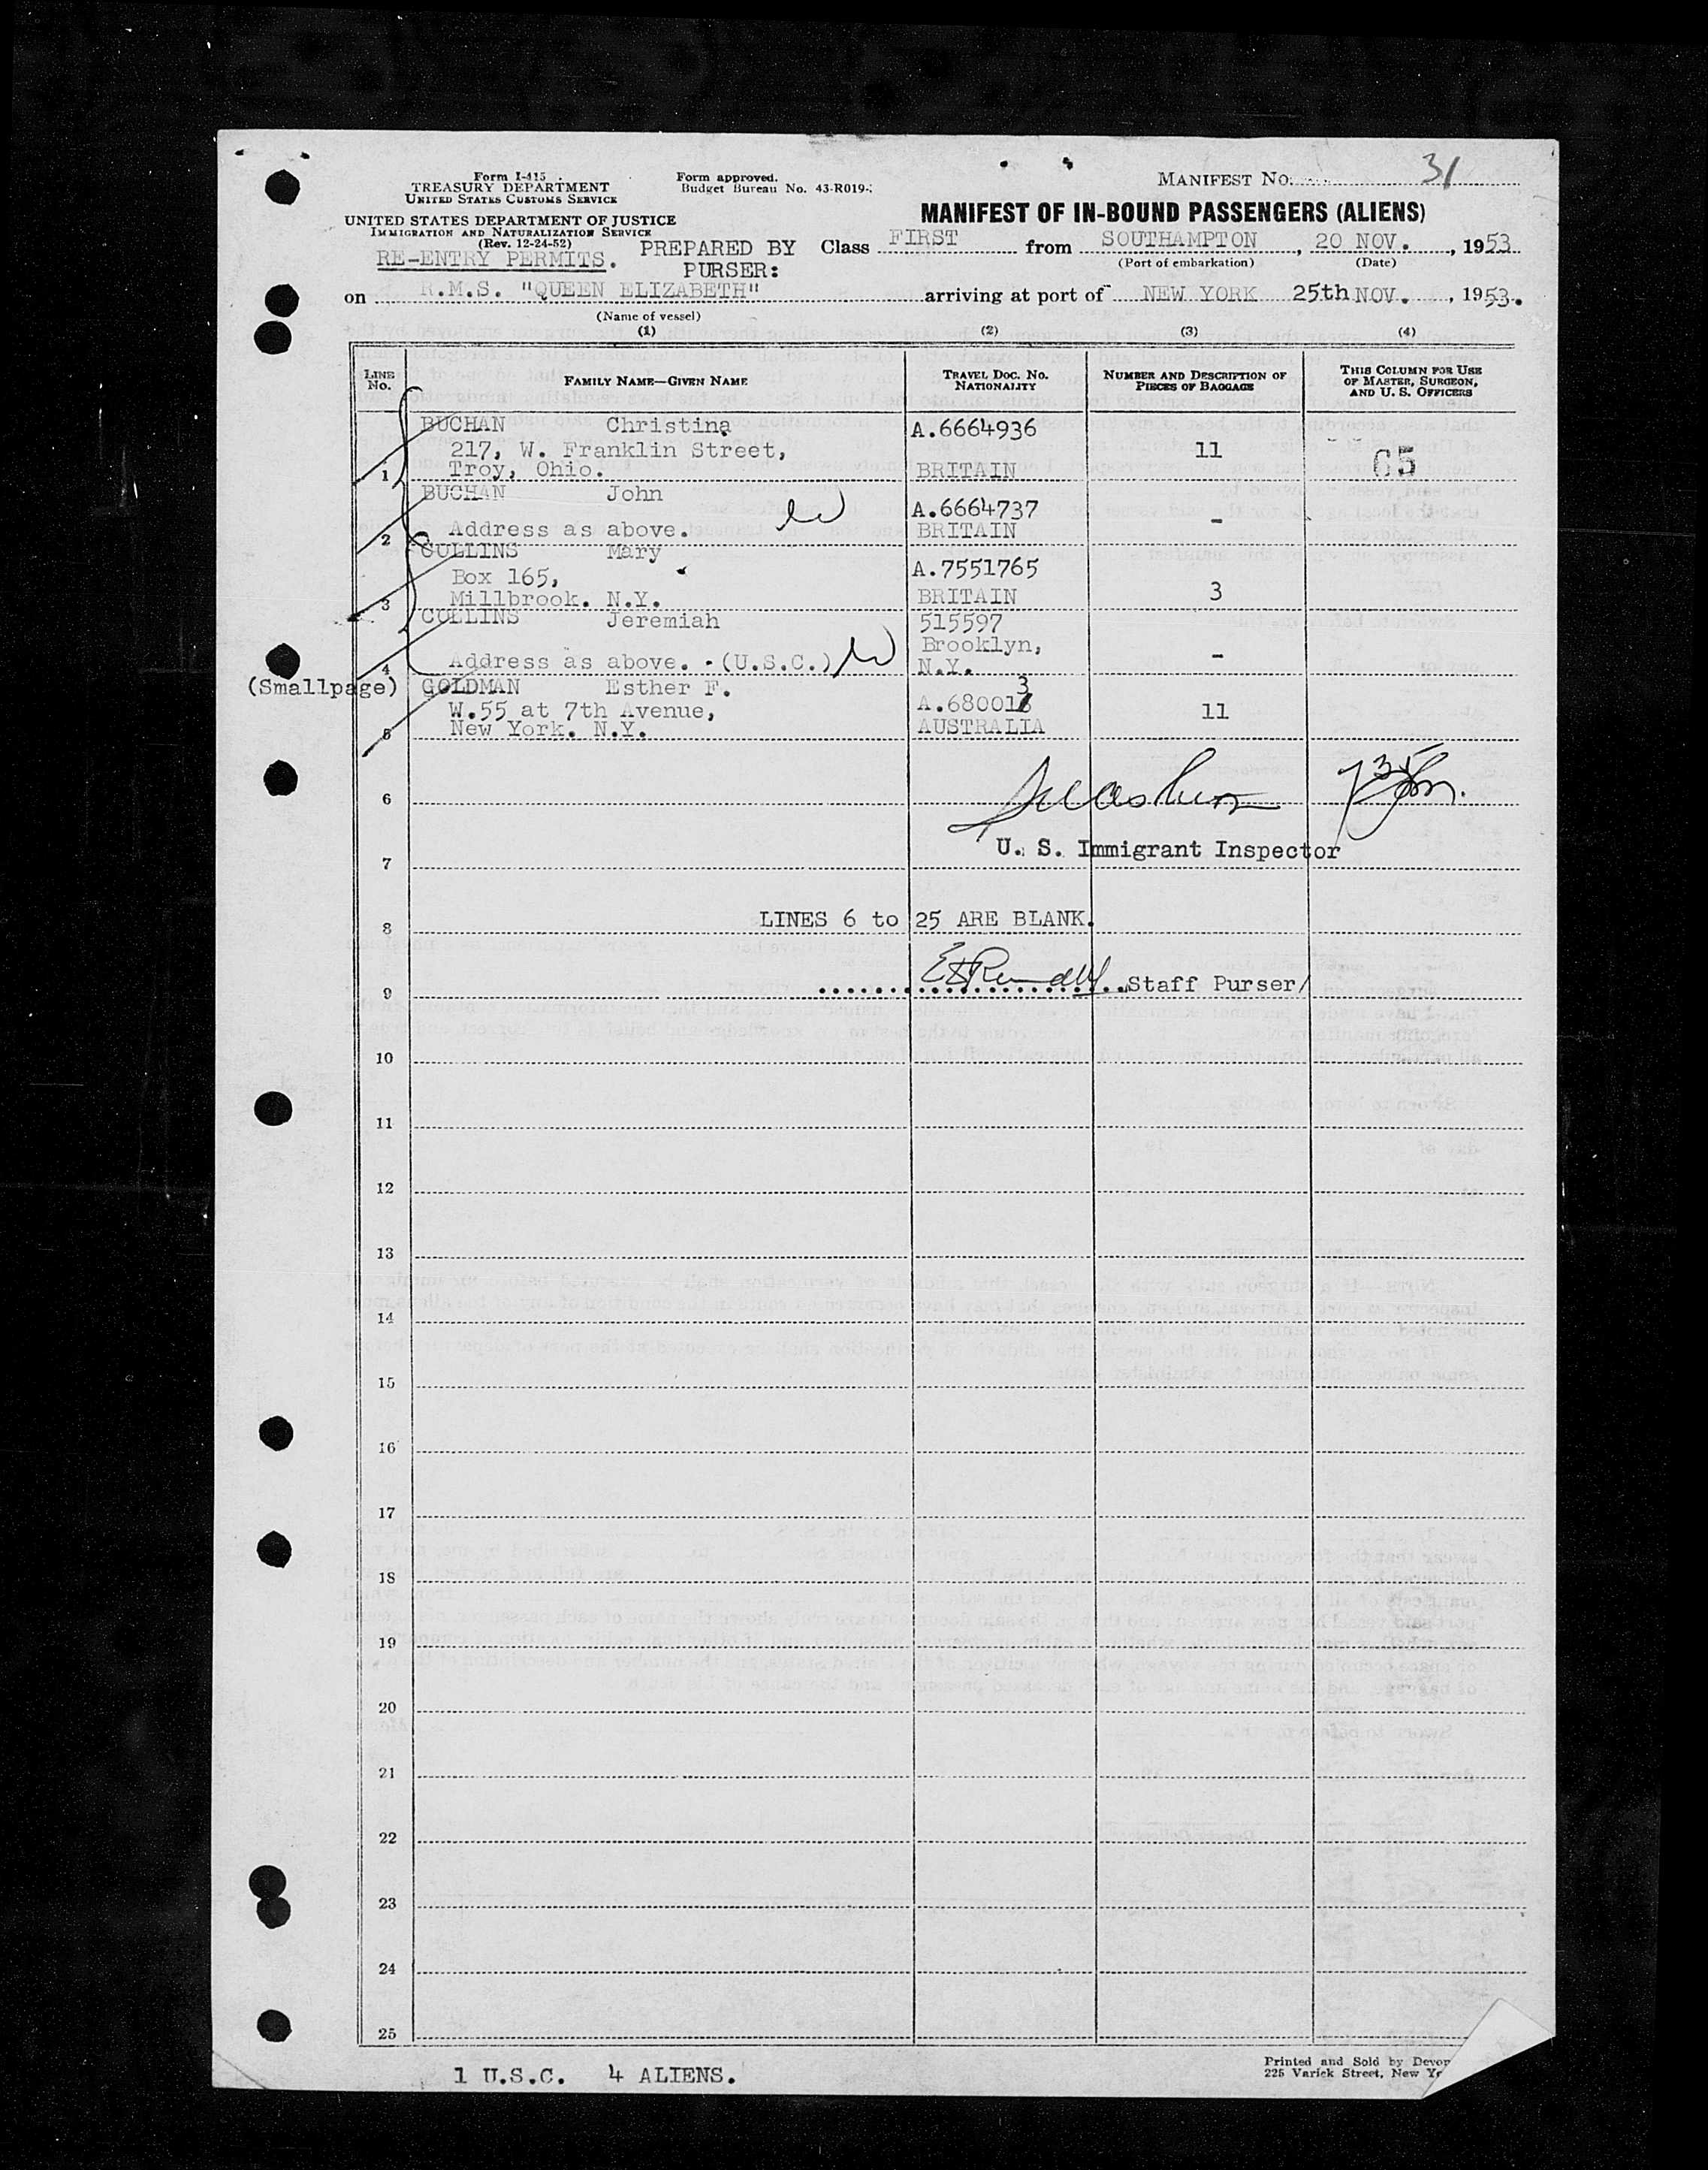 Form I-415
TREASURY DEPARTMENT
UNITED STATES CUSTOMS SERVICE
Form approved.
Budget Bureau No. 43-R019-
MANIFEST NO. 31
UNITED STATES DEPARTMENT OF JUSTICE
IMMIGRATION AND NATURALIZATION SERVICE
(Rev. 12-24-52)
RE-ENTRY PERMITS.
PREPARED BY
PURSER:
MANIFEST OF IN-BOUND PASSENGERS (ALIENS)
Class FIRST from SOUTHAMPTON, 20 NOV., 1953
(Port of embarkation) (Date)
on R.M.S. "QUEEN ELIZABETH" arriving at port of NEW YORK 25th NOV., 1953.
(Name of vessel)
(1) (2) (3) (4)
LINE No. FAMILY NAME—GIVEN NAME TRAVEL DOC. NO. NATIONALITY NUMBER AND DESCRIPTION OF PIECES OF BAGGAGE THIS COLUMN FOR USE OF MASTER, SURGEON, AND U. S. OFFICERS
BUCHAN Christina A.6664936
217, W. Franklin Street, 11 65
1 Troy, Ohio. BRITAIN
BUCHAN John A.6664737
2 Address as above. BRITAIN -
COLLINS Mary
Box 165, A.7551765
3 Millbrook. N.Y. BRITAIN 3
COLLINS Jeremiah 515597
Brooklyn,
4 Address as above. - (U.S.C.) N.Y. -
(Smallpage) GOLDMAN Esther F. 3
W.55 at 7th Avenue, A.68001 11
5 New York. N.Y. AUSTRALIA
6
U. S. Immigrant Inspector
7
LINES 6 to 25 ARE BLANK.
8
Staff Purser/
9
10
11
12
13
14
15
16
17
18
19
20
21
22
23
24
25
1 U.S.C. 4 ALIENS.
Printed and Sold by
225 Varick Street, New